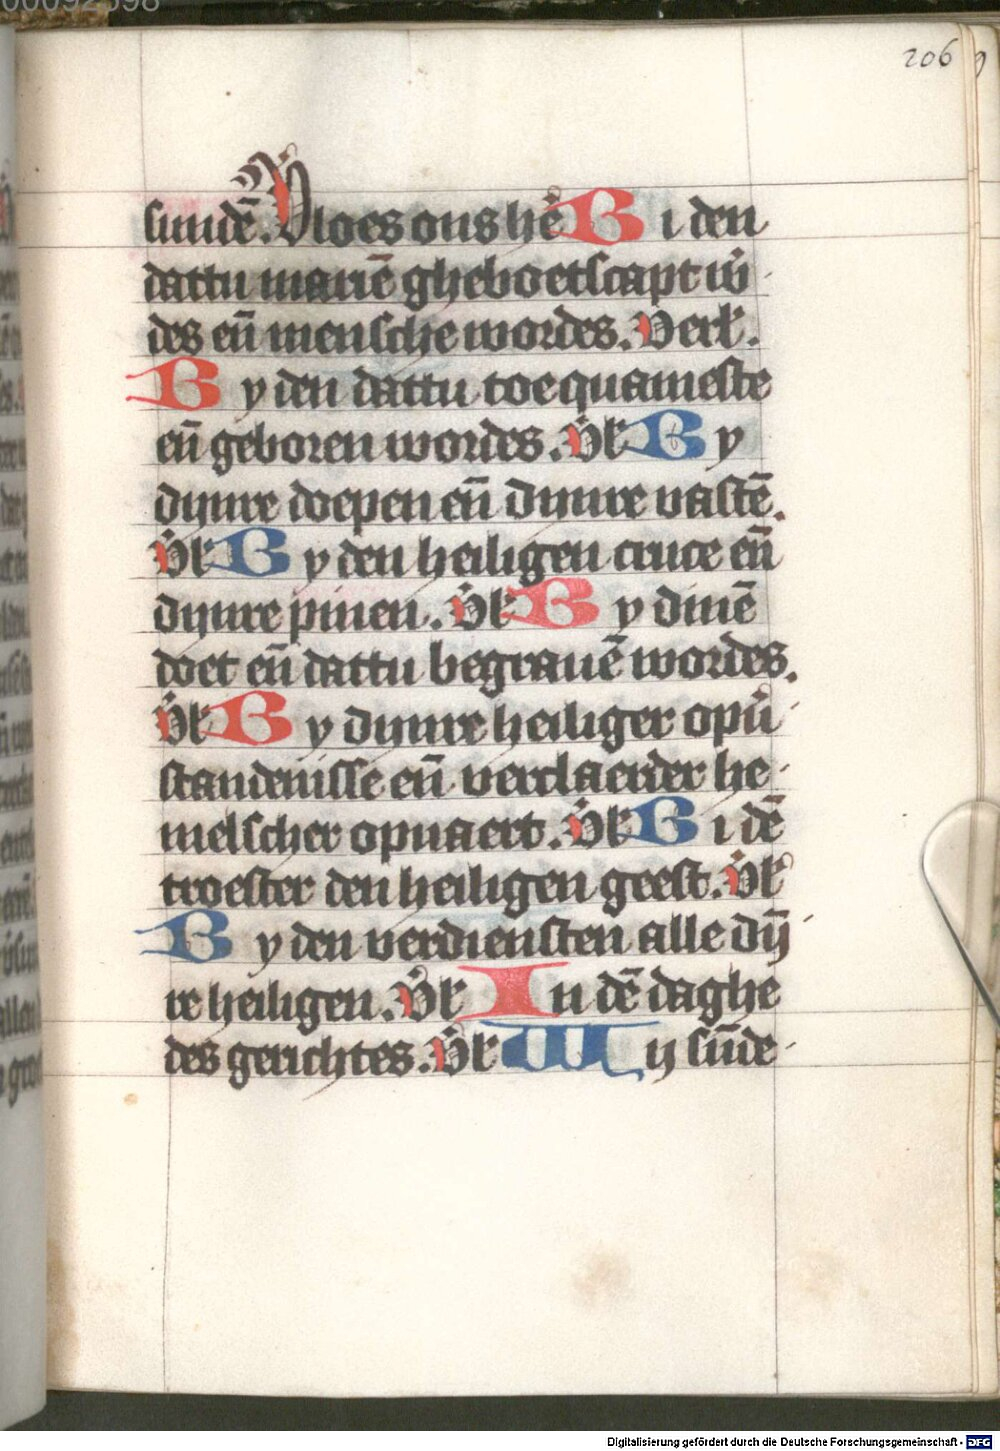 00092598
206
sundē. Vloes ons hē B i den
dattu mariē gheboetscapt wō
des eñ mensche wordes. Verl.
B y den dattu toequameste
eñ geboren wordes. Vl B y
dijnre doepen eñ dijnre vastē.
Vl B y den heiligen cruce eñ
dijnre pinen. Vl B y dinē
doet eñ dattu begrauē wordes.
Vl B y dijnre heiliger opū
standenisse eñ verclaerder he
melscher opuaert. Vl B i dē
troester den heiligen geest. Vl
B y den verdiensten alle dij̄
re heiligen. Vl I n dē daghe
des gerichtes. Vl W ij sūde
Digitalisierung gefördert durch die Deutsche Forschungsgemeinschaft - DFG